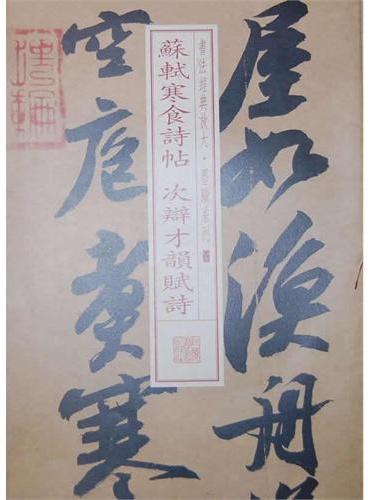 屋如漁舟
書法經典放大・墨跡系列
蘇軾寒食詩帖 次辯才韻賦詩
空庖煮寒